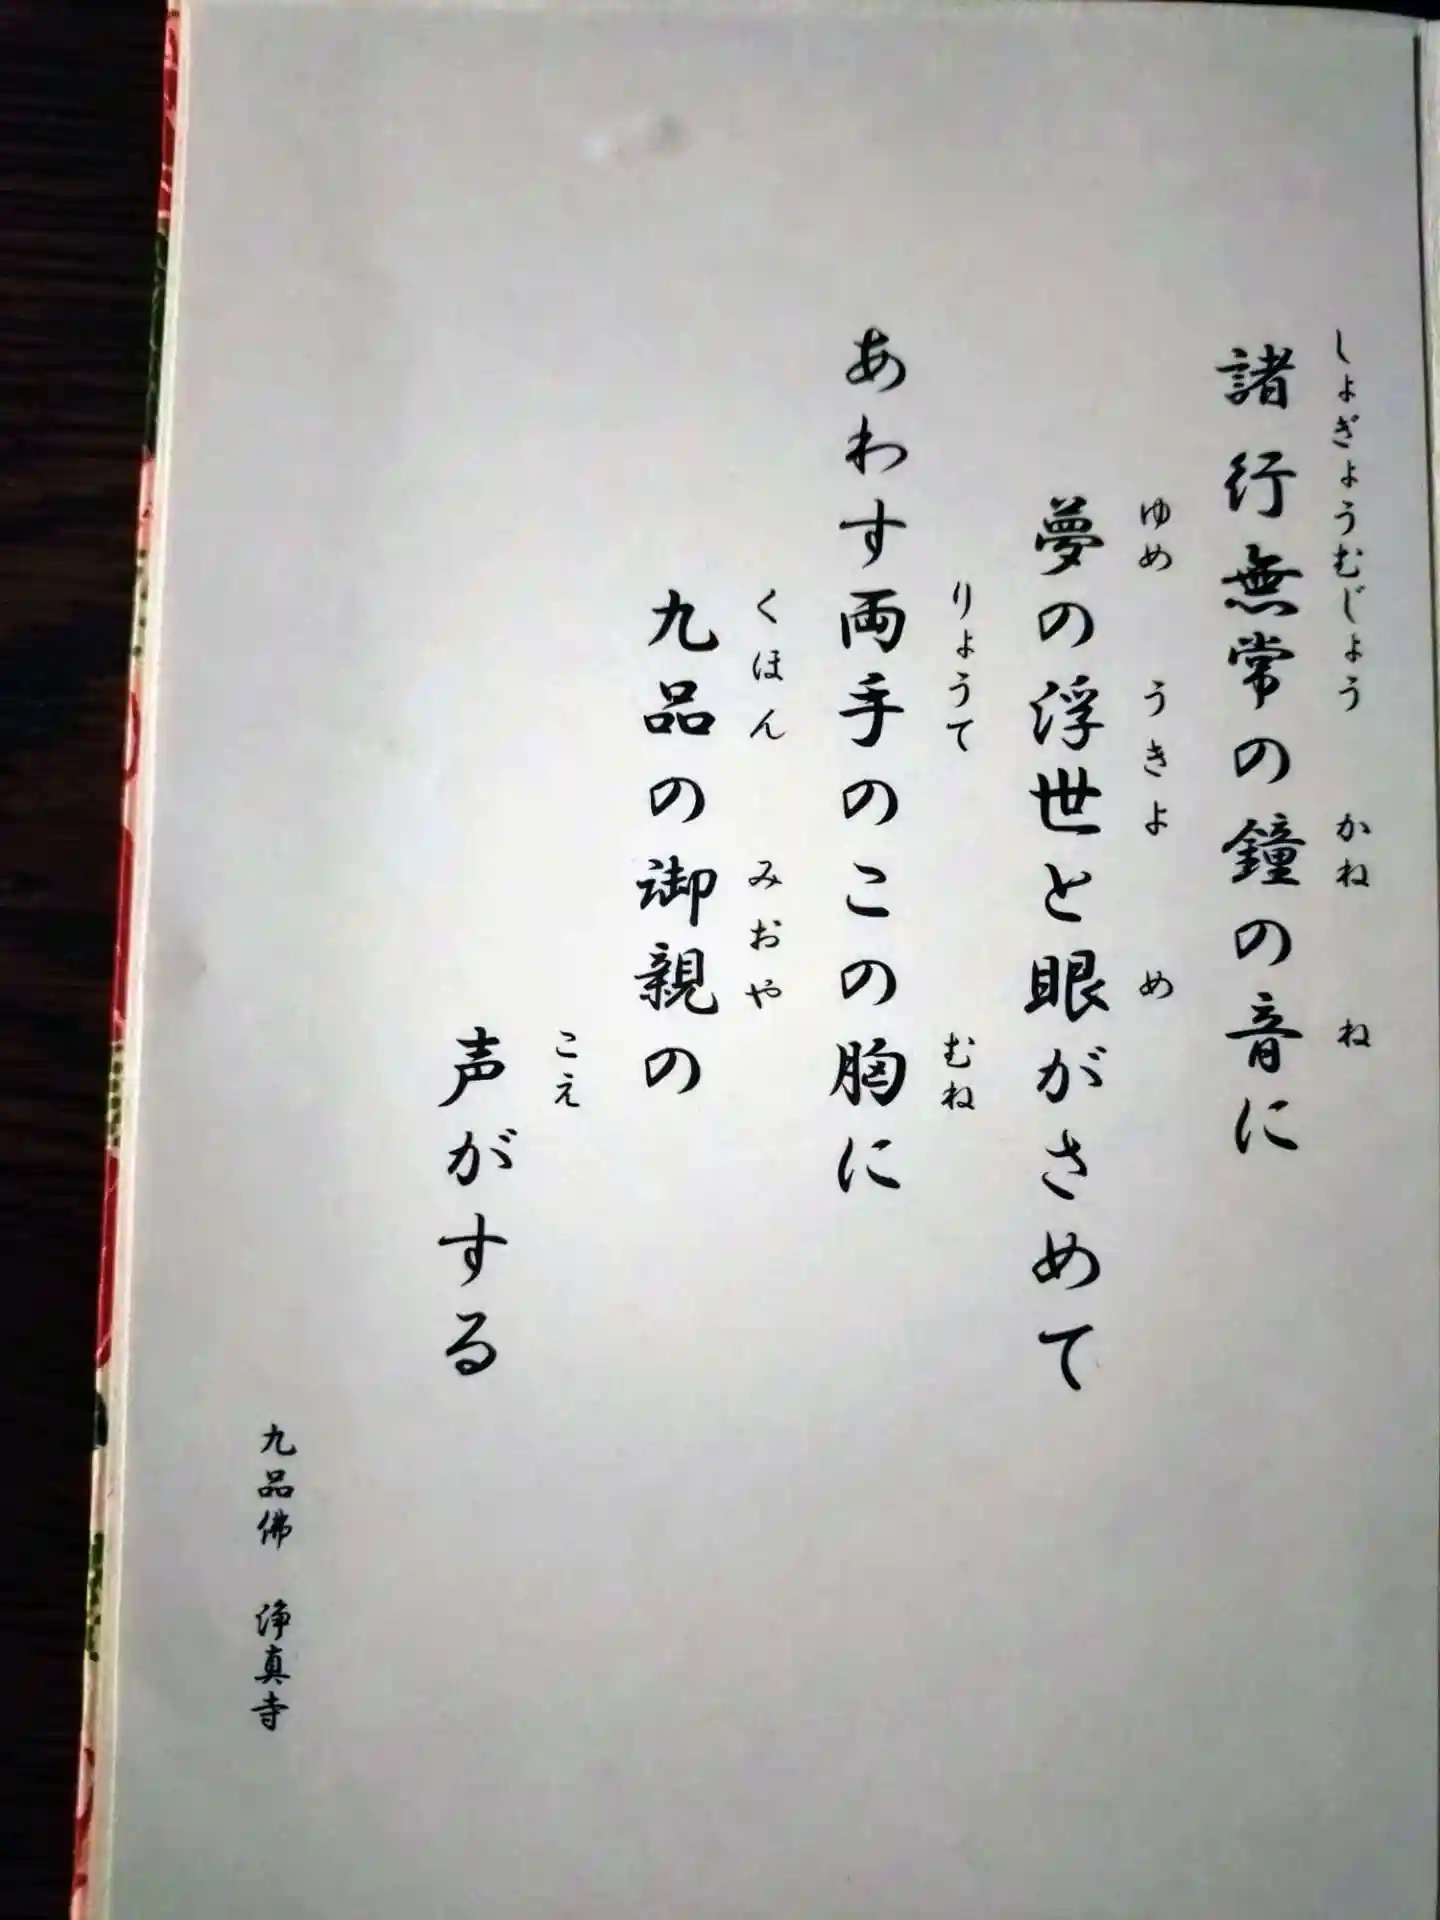 諸行無常の鐘の音に
しょぎょうむじょう かね ね
夢の浮世と眼がさめて
ゆめ うきよ め
あわす両手のこの胸に
りょうて むね
九品の御親の
くほん みおや
声がする
こえ
九品佛 浄真寺